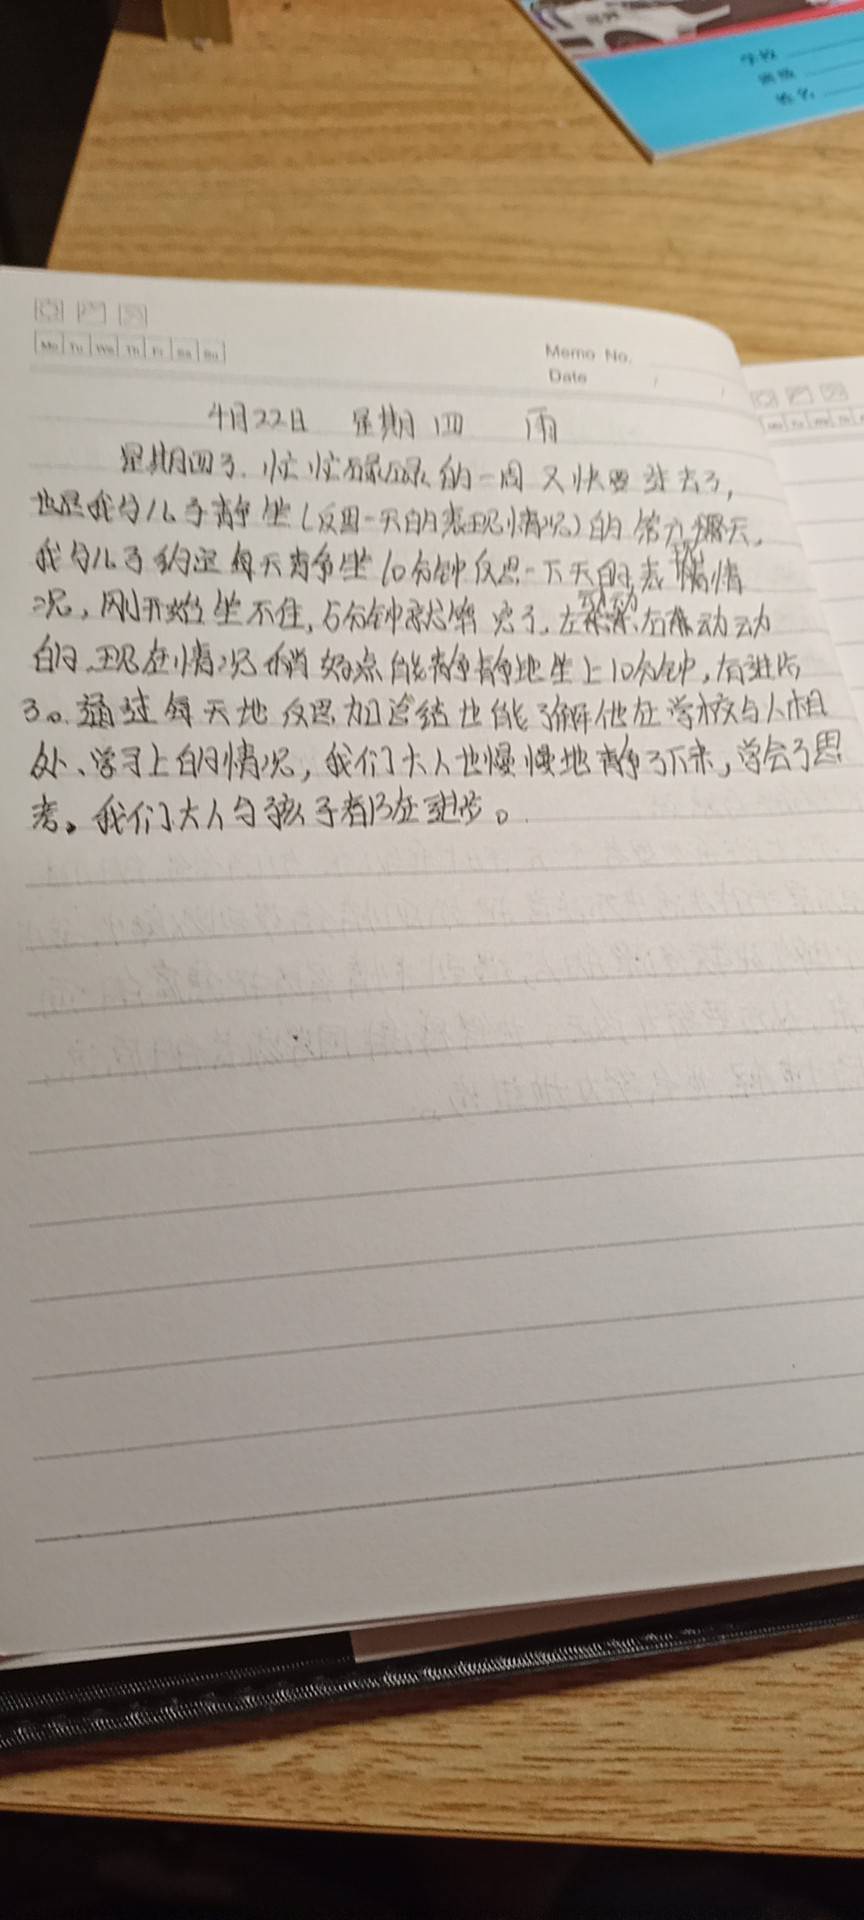 学校
班级
姓名
Mo Tu We Th Fr Sa Su
Memo No.
Date / /
4月22日 星期四 雨
星期四了.忙忙碌碌的一周又快要过去了,
也是我与儿子静坐(反思一天的表现情况)的第六天。
我与儿子约定每天静坐10分钟反思一下天的表现情
况,刚开始坐不住,5分钟就
左动动右动动
的.现在情况稍好点能静静地坐上10分钟,有进步
了。通过每天地反思加总结也能了解他在学校与人相
处、学习上的情况,我们大人也慢慢地静了下来,学会了思
考。我们大人与孩子都在进步。